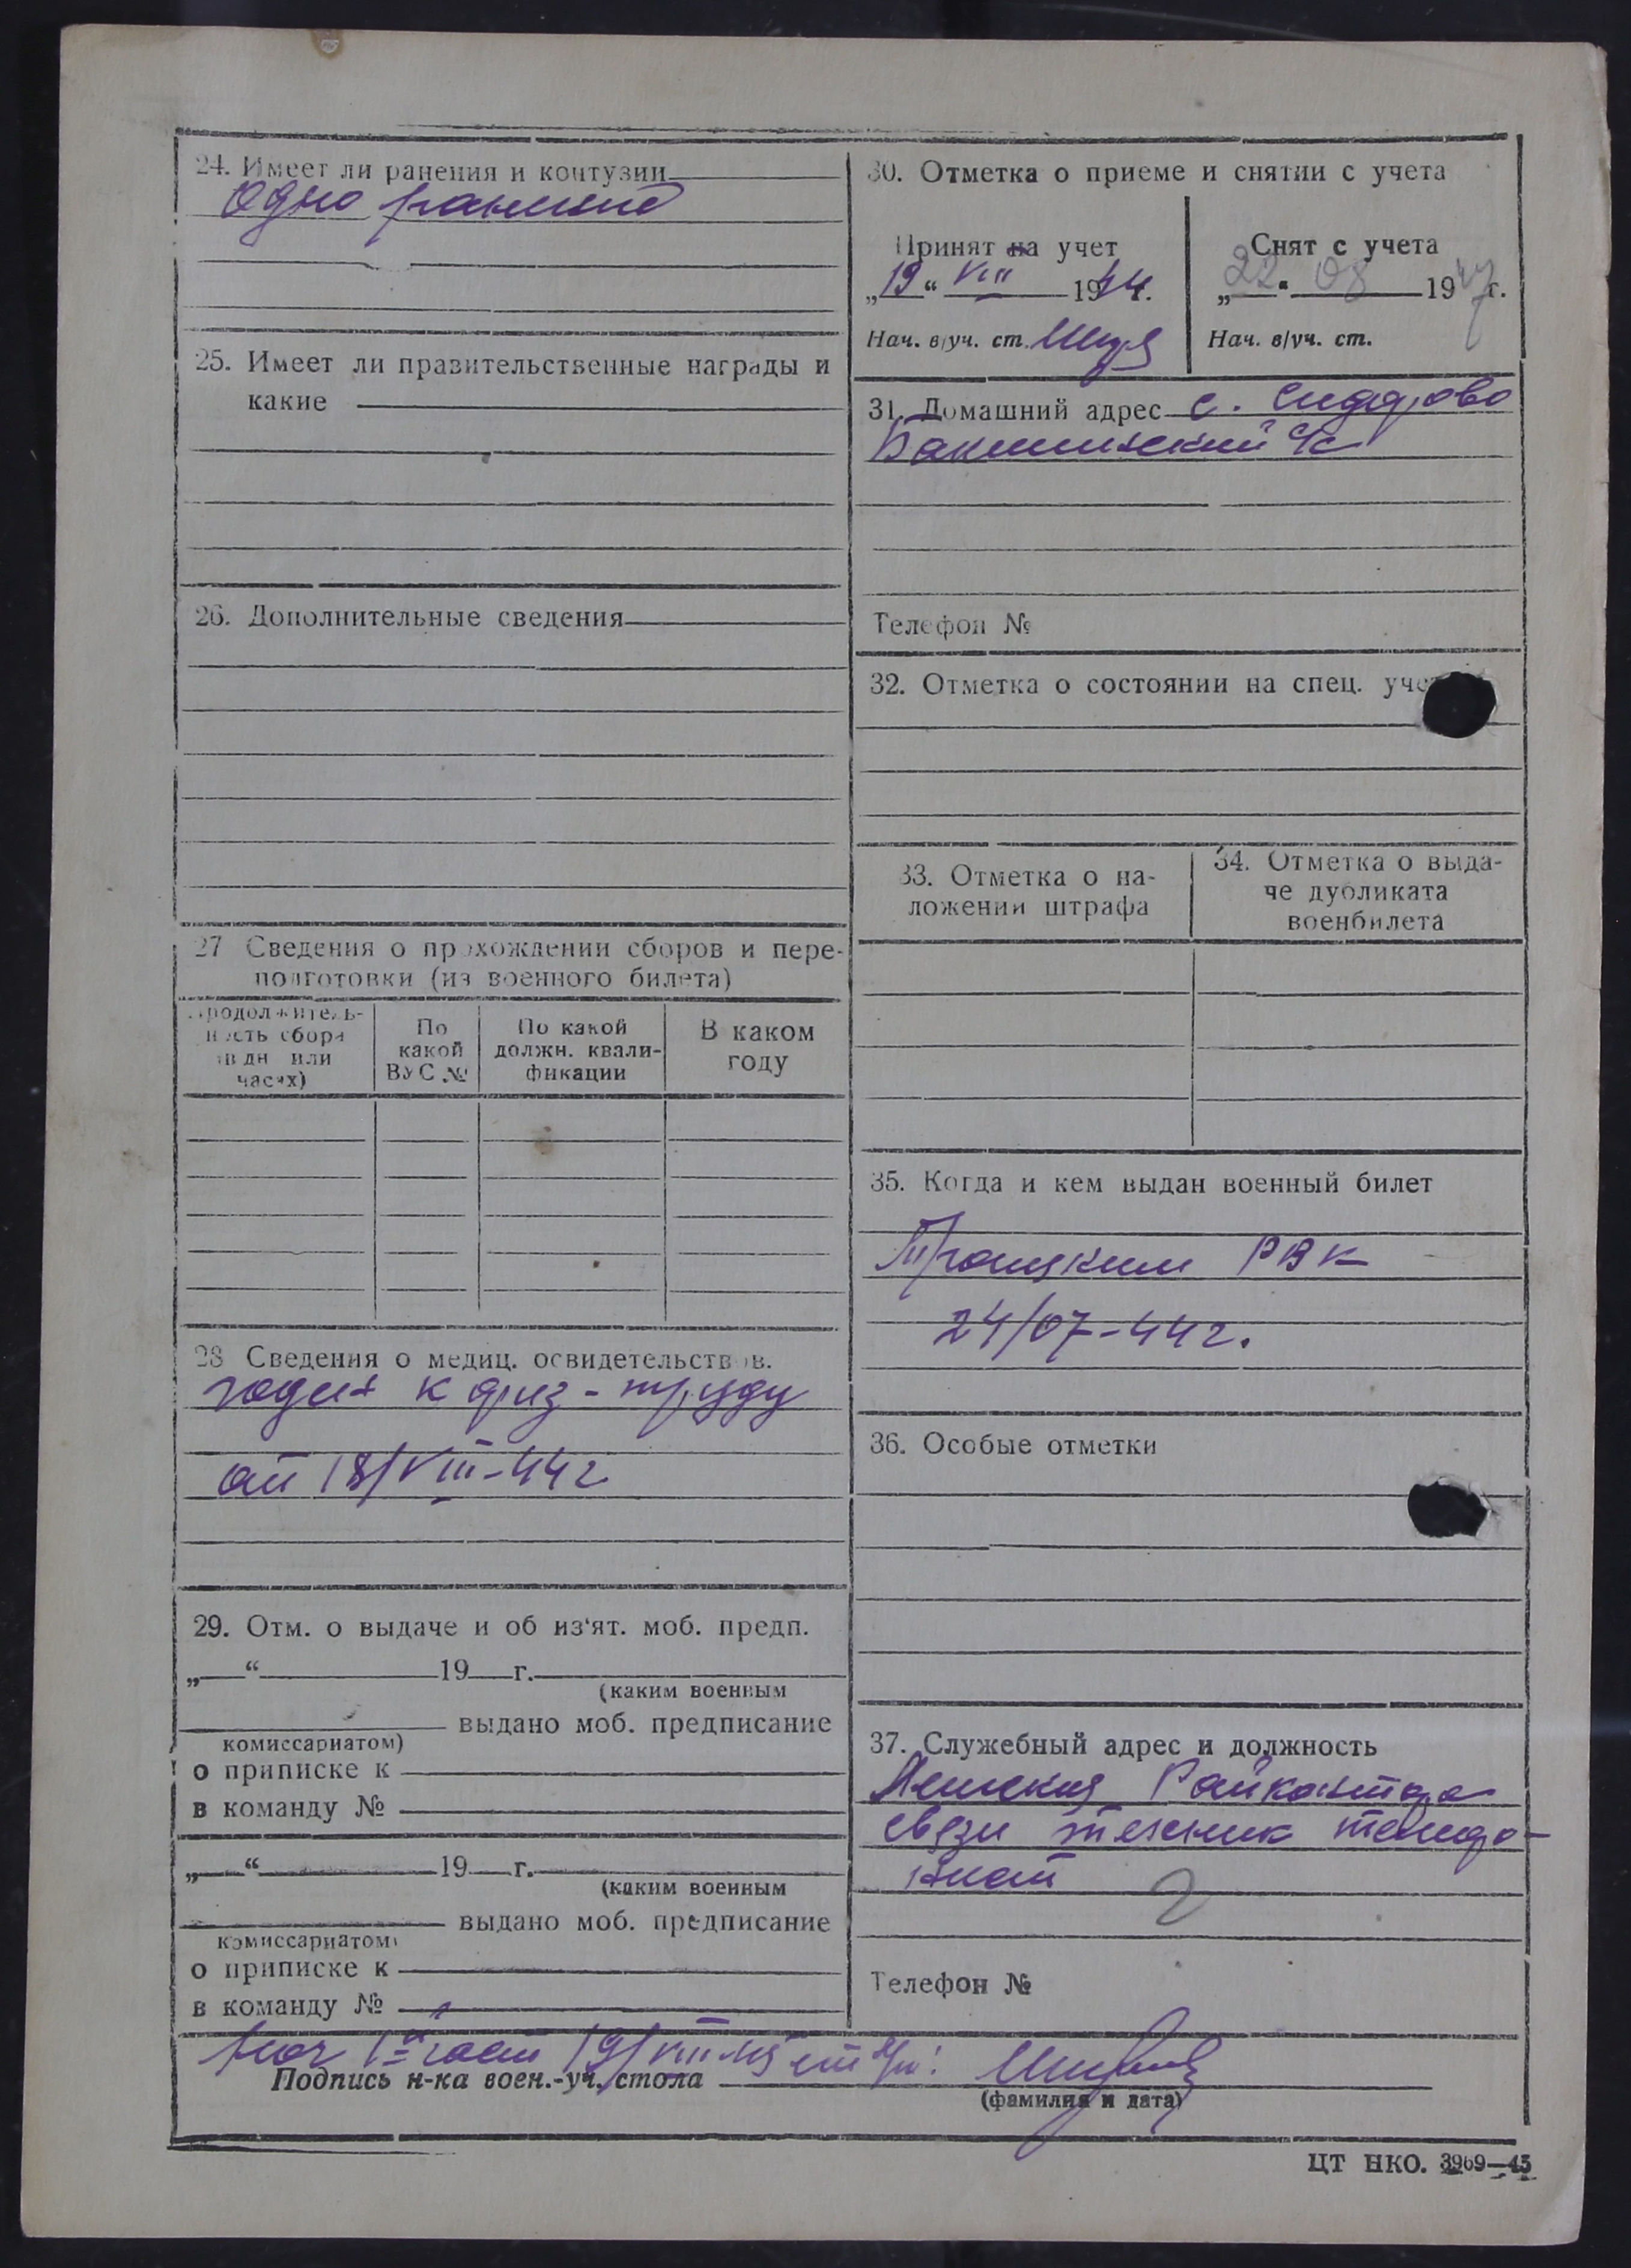 24. Имеет ли ранения и контузии
Одно ранение
25. Имеет ли правительственные награды и
какие
26. Дополнительные сведения
27 Сведения о прохождении сборов и пере-
подготовки (из военного билета)
Продолжитель-
ность сбора
(в дн или
часах)
По
какой
ВУС №
По какой
должн. квали-
фикации
В каком
году
28 Сведения о медиц. освидетельствов.
годен к физ-труду
от 18/VIII-44 г
29. Отм. о выдаче и об из'ят. моб. предп.
„ “ 19 г.
(каким военным
выдано моб. предписание
комиссариатом)
о приписке к
в команду №
„ “ 19 г.
(каким военным
выдано моб. предписание
комиссариатом)
о приписке к
в команду №
30. Отметка о приеме и снятии с учета
Принят на учет
„19“ VIII 1944.
Нач. в/уч. ст.
Снят с учета
„22“ 08 1947г.
Нач. в/уч. ст.
31. Домашний адрес с.
с/с
Телефон №
32. Отметка о состоянии на спец.
33. Отметка о на-
ложении штрафа
34. Отметка о выда-
че дубликата
военбилета
35. Когда и кем выдан военный билет
Троицким РВК
24/07-44 г.
36. Особые отметки
37. Служебный адрес и должность
Райконтора
связи техник
Телефон №
19/VIII-45
Подпись н-ка воен.-уч. стола
(фамилия и дата)
ЦТ НКО. 3969—45